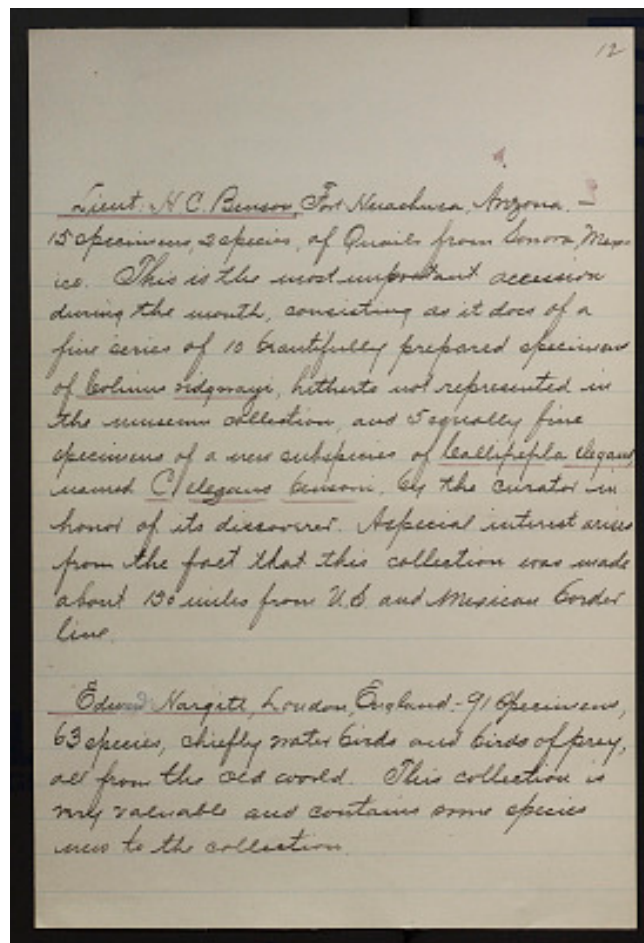 12
Lieut. H. C. Benson, Fort Huachuca, Arizona. –
15 specimens, 2 species, of Quails from Sonora, Mex-
ico. This is the most important accession
during the month, consisting as it does of a
fine series of 10 beautifully prepared specimens
of Colinus ridgwayi, hitherto not represented in
the museum collection, and 5 equally fine
specimens of a new subspecies of Callipepla elegans,
named C. elegans bensoni, by the curator in
honor of its discoverer. A special interest arises
from the fact that this collection was made
about 130 miles from U.S. and Mexican border
line.
Edward Hargitt, London, England. – 91 specimens,
63 species, chiefly water birds and birds of prey,
all from the old world. This collection is
very valuable and contains some species
new to the collection.